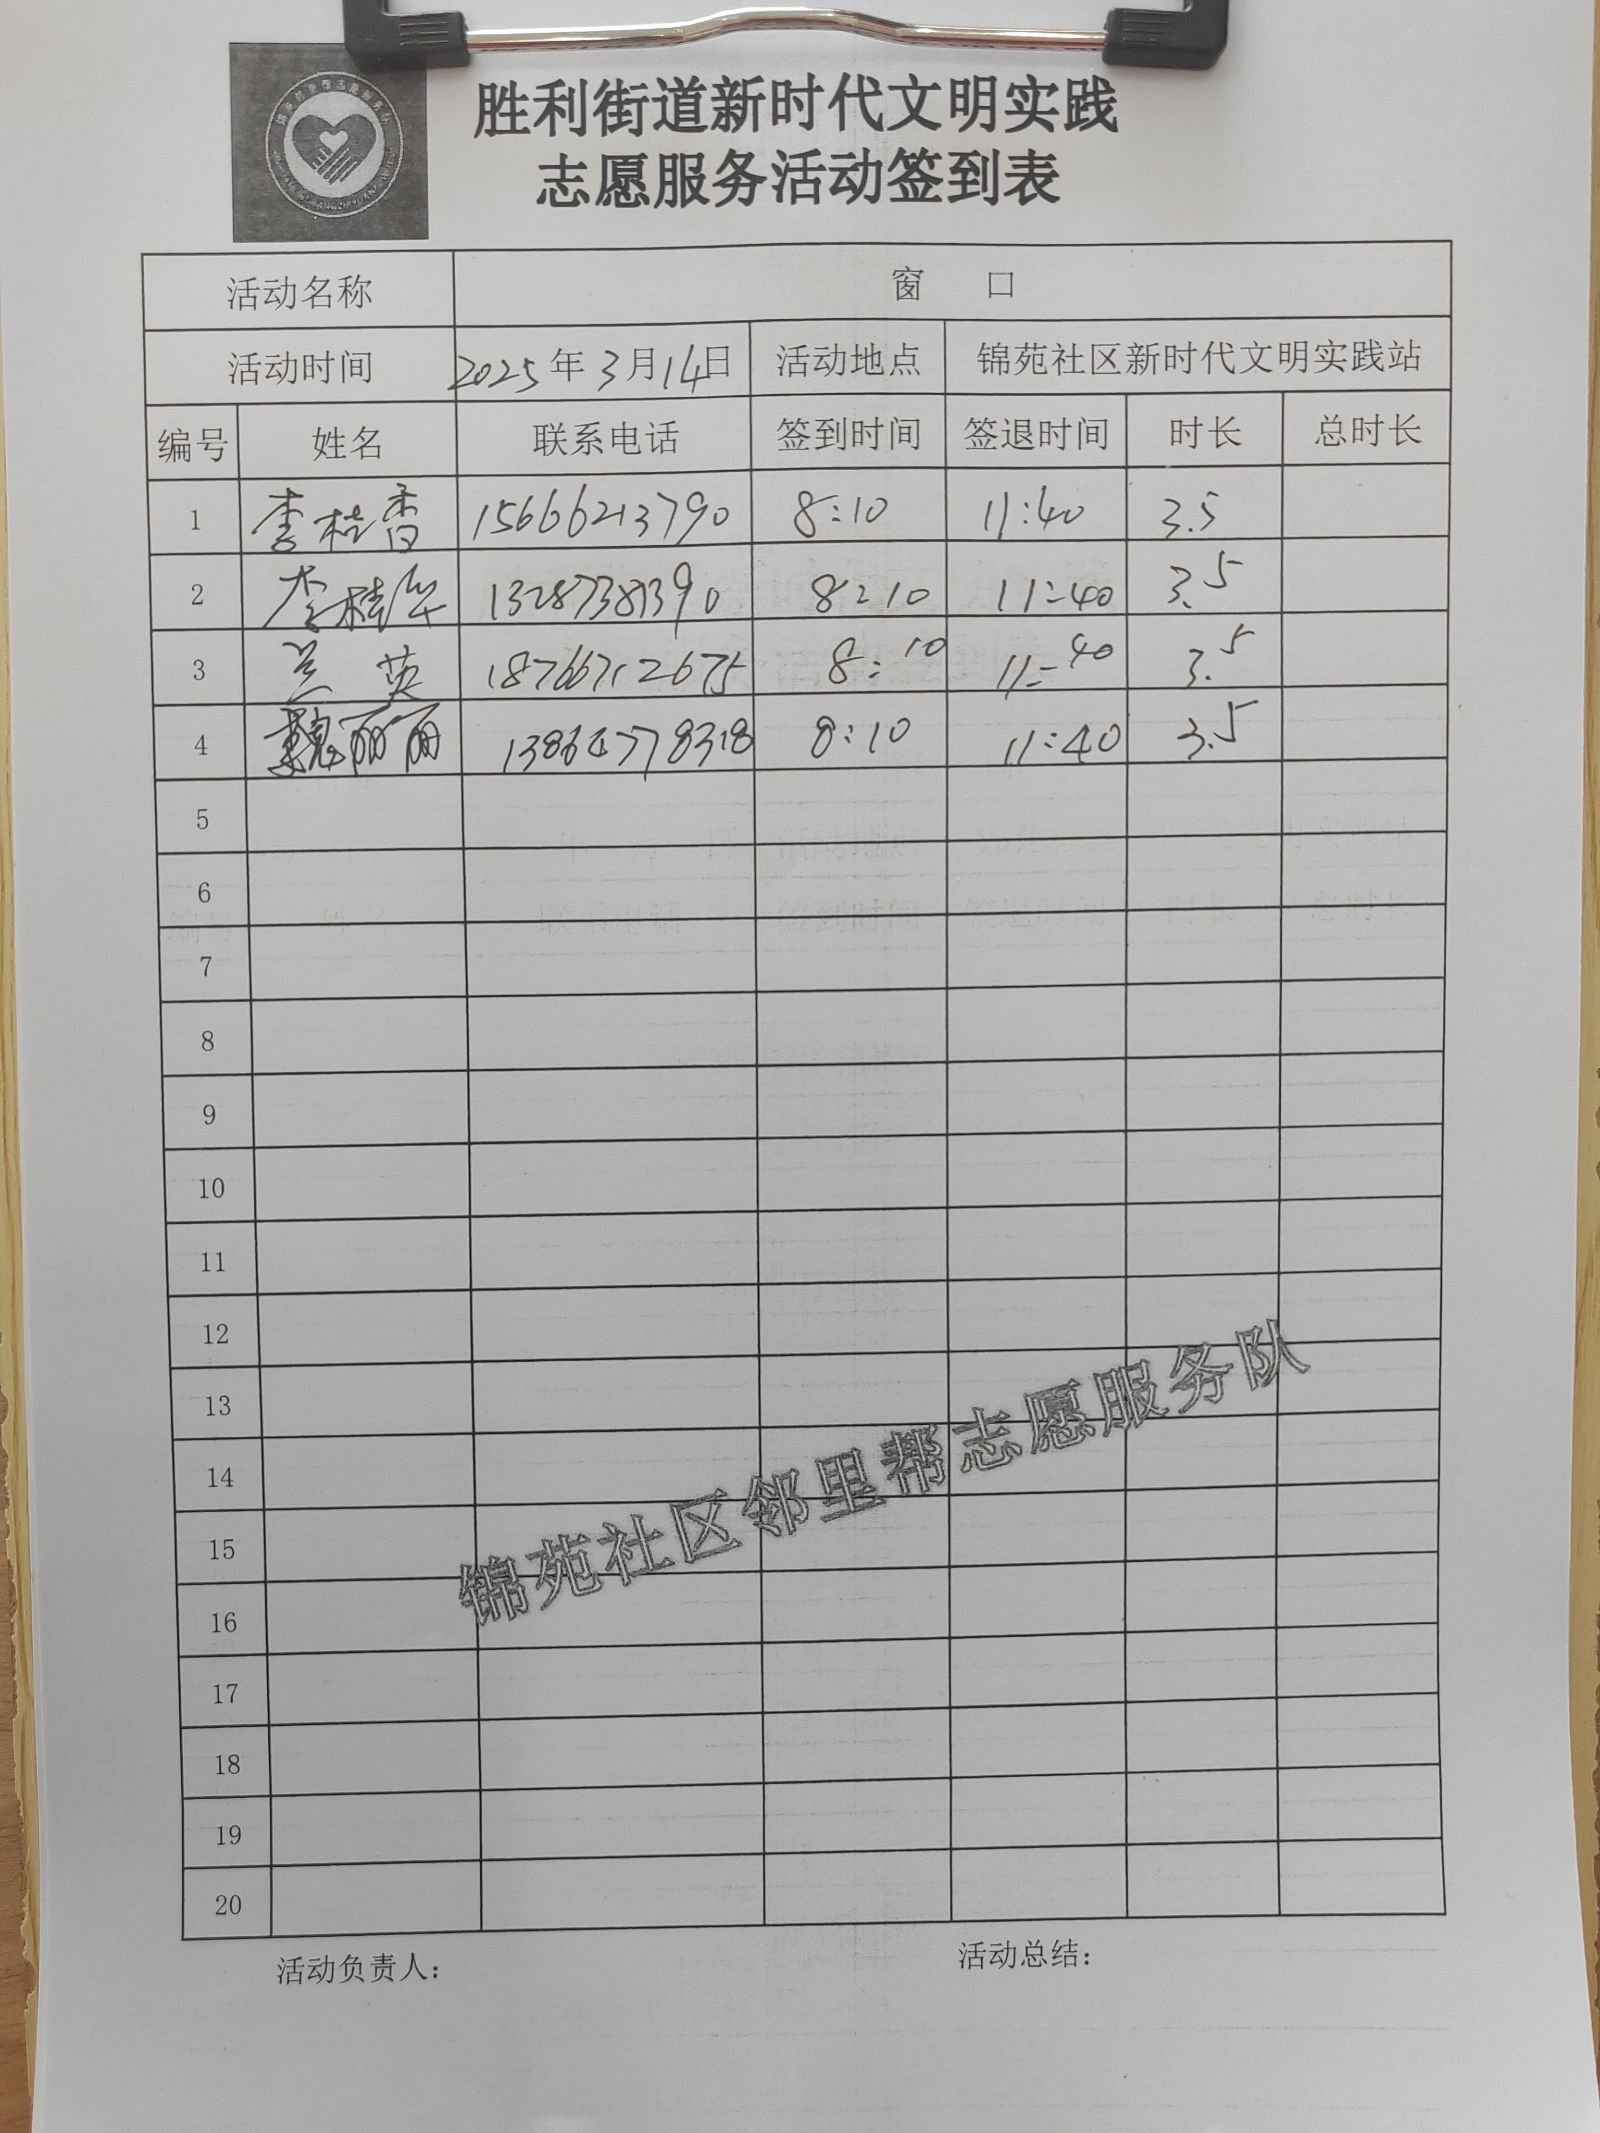 胜利街道新时代文明实践
志愿服务活动签到表
活动名称 窗 口
活动时间 2025年3月14日 活动地点 锦苑社区新时代文明实践站
编号 姓名 联系电话 签到时间 签退时间 时长 总时长
1 李桂香 15666213790 8:10 11:40 3.5
2 李桂华 13287381390 8:10 11:40 3.5
3 兰英 18766712675 8:10 11:40 3.5
4 魏丽丽 13864778318 8:10 11:40 3.5
5
6
7
8
9
10
11
12
13
14
15
16
17
18
19
20
锦苑社区邻里帮志愿服务队
活动负责人： 活动总结：